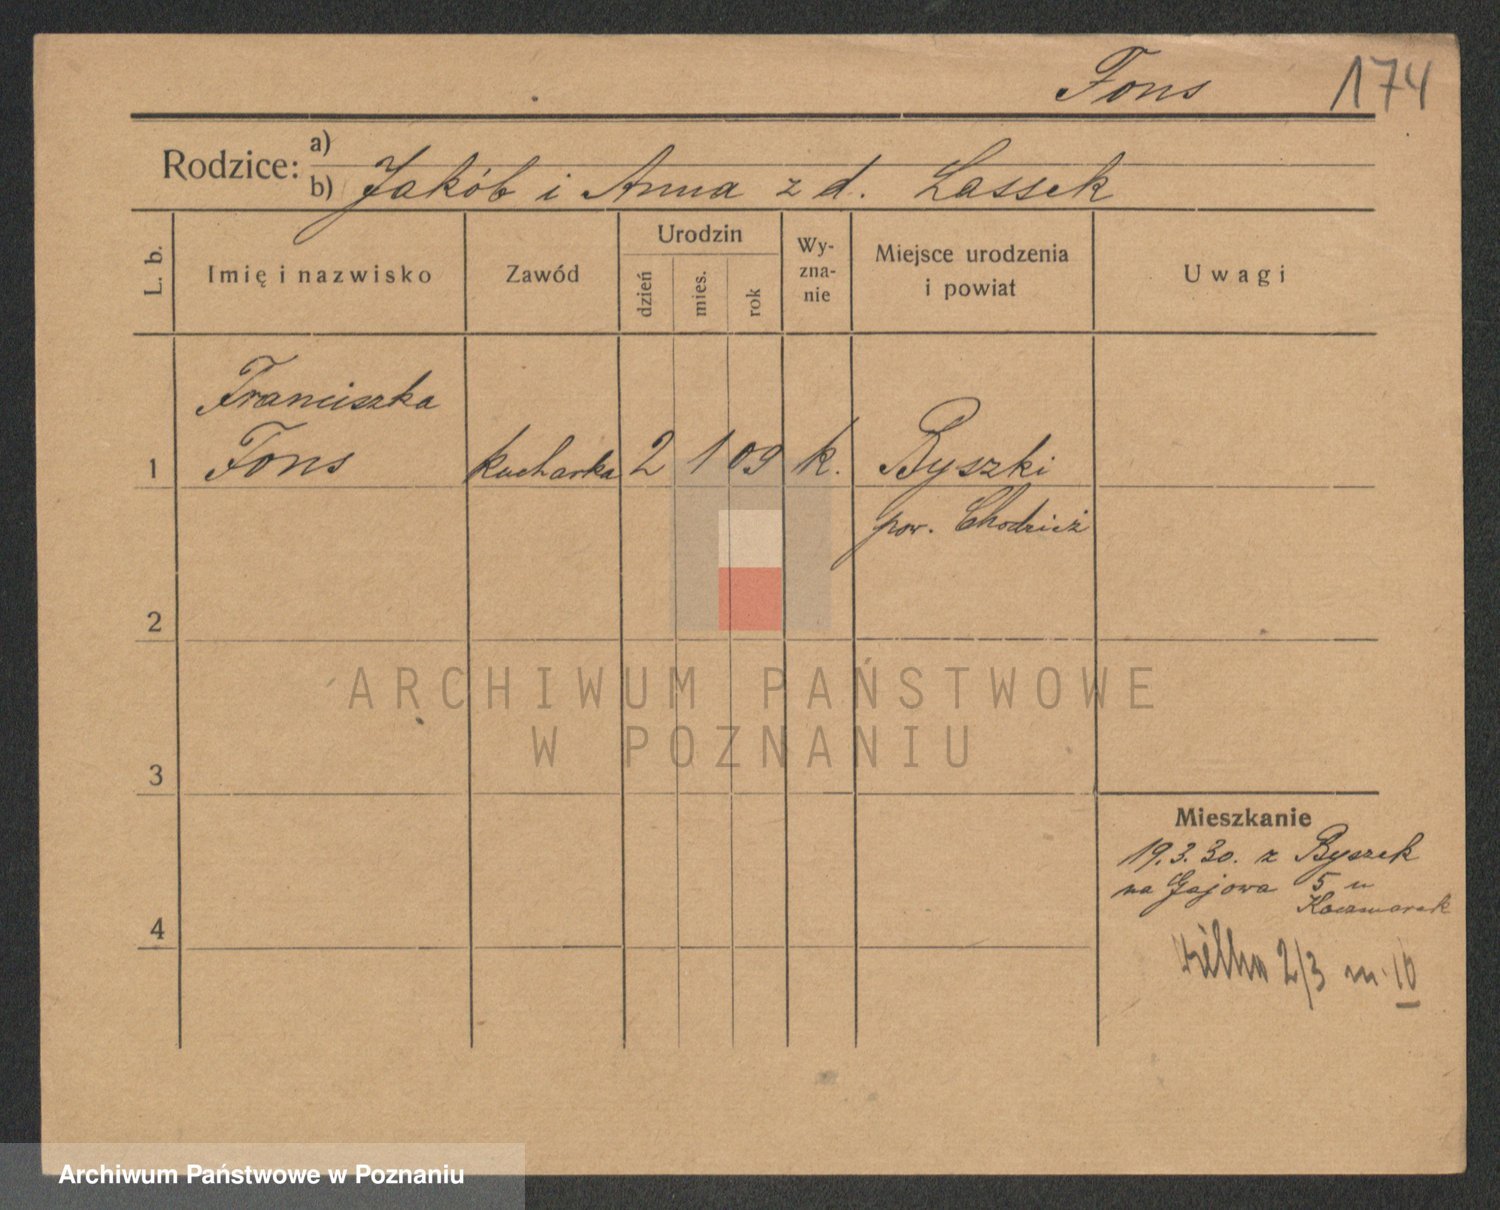 Fons 174
Rodzice: a)
b) Jakób i Anna z d. Lassek
L. b.
Imię i nazwisko
Zawód
Urodzin
dzień
mies.
rok
Wy-
zna-
nie
Miejsce urodzenia
i powiat
Uwagi
Franciszka
1 Fons kucharka 2 1 09 k. Byszki
pow. Chodzież
2
ARCHIWUM PAŃSTWOWE
W POZNANIU
3
Mieszkanie
19.3.30. z Byszek
na Gajowa 5 u
Kaczmarek
4
2/3 m. 10
Archiwum Państwowe w Poznaniu